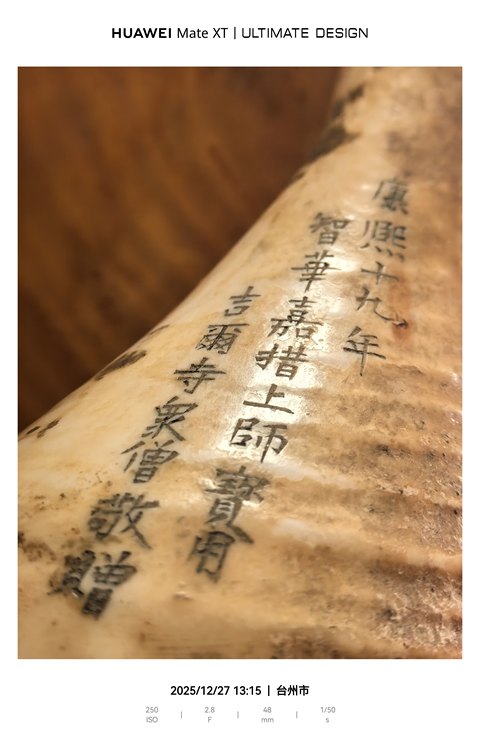 HUAWEI Mate XT | ULTIMATE DESIGN
康熙十九年
智華嘉措上師寶用
吉爾寺衆僧敬贈
2025/12/27 13:15 | 台州市
250 | 2.8 | 48 | 1/50
ISO F mm s